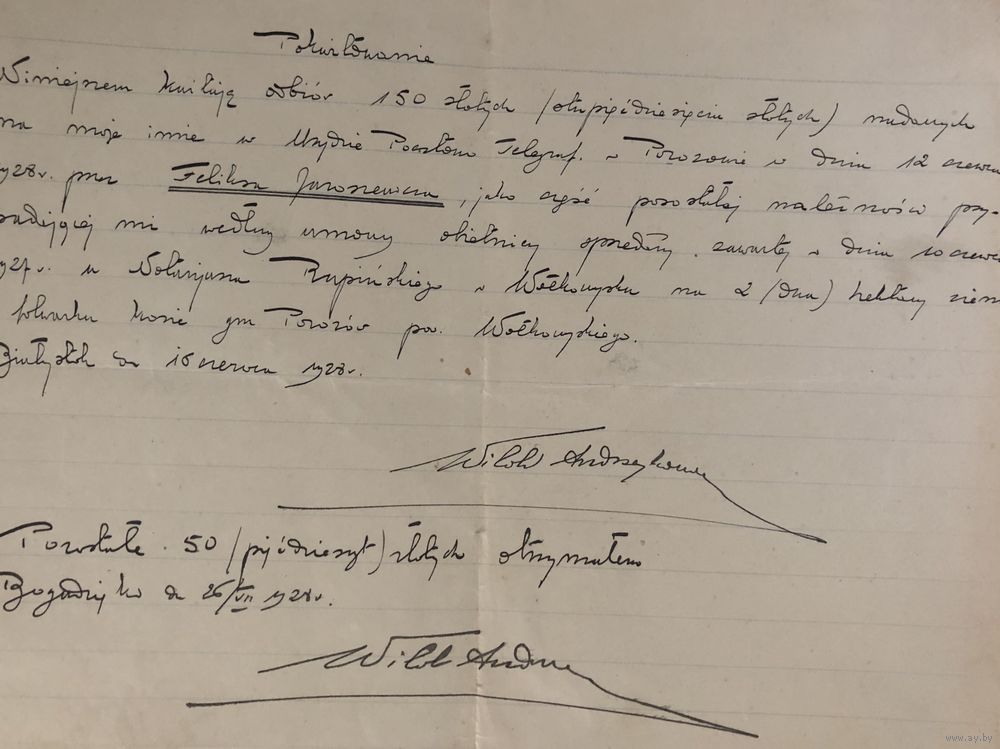 Pokwitowanie
Niniejszem kwituję odbiór 150 złotych (stupięćdziesięciu złotych) nadanych
na moje imie w Urzędzie Pocztowo Telegraf. w Porozowie w dniu 12 czerwca
1928r. przez Feliksa Jaroszewicza, jako część pozostałej należności przy-
padającej mi według umowy obietnicy sprzedaży zawartej w dniu 10 czerwca
1927r. u Notarjusza Rupińskiego w Wołkowysku na 2 (dwa) hektary ziemi
folwarku Kosin gm Porozów pow. Wołkowyskiego.
Białystok dn 16 czerwca 1928r.
Witold Andrzejkowicz
Pozostałe 50 (pięćdziesąt) złotych otrzymałem
dn 26/VII 1928r.
Witold
www.ay.by